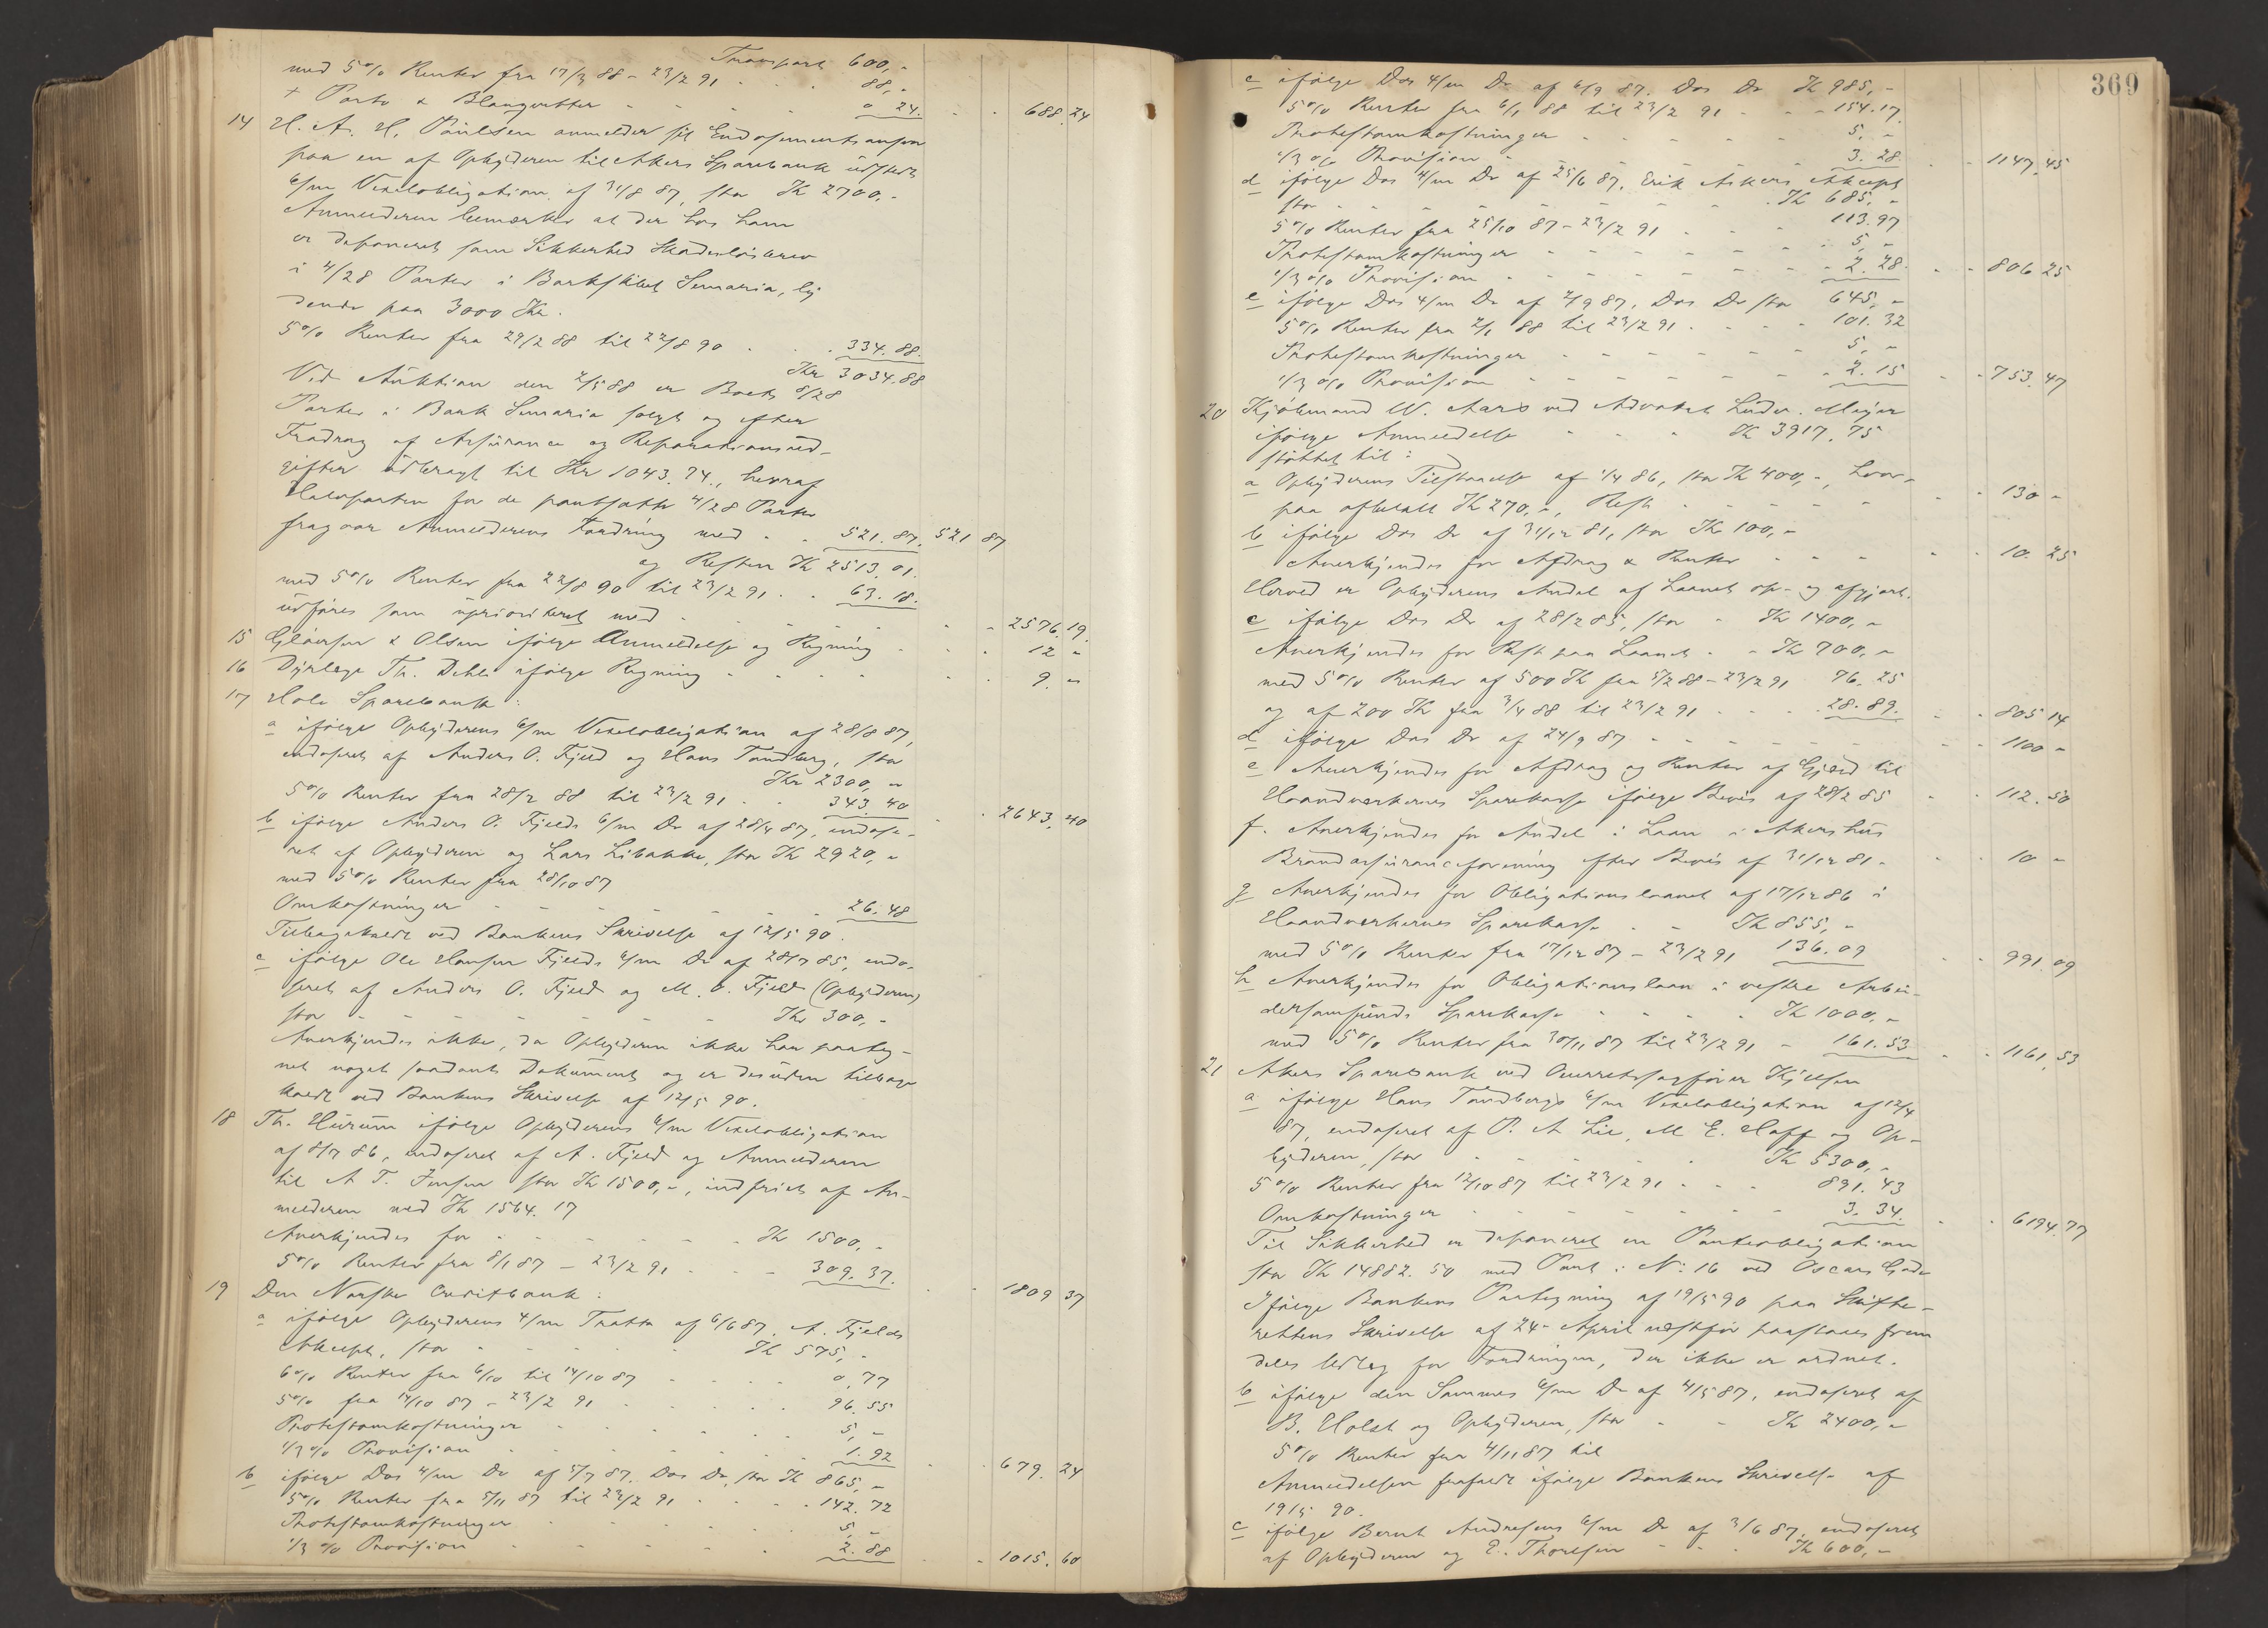 Transport 600,-
med 5% Renter fra 17/3 88 - 23/2 91 - - 88,-
+ Porto & Blanqvetter - - - - 0 24. - - 688.24
14 H. A. H. Paulsen anmelder sit Endosementsansvar
paa en af Opbyderen til Akers Sparebank udstedt
6/m Vexelobligation af 31/8 87, stor Kr 2700,-
Anmelderen bemærker at der hos ham
er deponeret som Sikkerhed Skadesløsbrev
i 4/28 Parter i Barkskibet Semaria, ly
dende paa 3000 Kr.
5% Renter fra 29/2 88 til 22/8 90 - - 334.88.
Kr 3034.88
Ved Auktion den 2/5 88 er Boets 8/28
Parter i Bark Semaria solgt og efter
Fradrag af Assurance og Reparationsud-
gifter udbragt til Kr 1043.74., hvoraf
Halvparten for de pantsatte 4/28 Parter
fragaar Anmelderens Fordring med - - 521.87. 521 87
og Resten Kr 2513.01.
med 5% Renter fra 22/8 90 til 23/2 91 - - 63.18.
udføres som uprioriteret med - - - - - 2576.19.
15 & Olsen ifølge Anmeldelse og Regning - - - 12 -
16 Dyrlæge Th. Dehli ifølge Regning - - - - - 9. -
17 Hole Sparebank:
a ifølge Opbyderens 6/m Vexelobligation af 28/8 87,
endosseret af Anders O. Fjeld og Hans Tandberg, stor
Kr 2300,-
5% Renter fra 28/2 88 til 23/2 91 - - 343.40 - - 2643.40
b ifølge Anders O. Fjelds 6/m Do af 28/4 87, endosse-
ret af Opbyderen og Lars Libakke, stor Kr 2920,-
med 5% Renter fra 28/10 87
Omkostninger - - - - - - - 26.48
Tilbagekaldt ved Bankens Skrivelse af 12/5 90.
c ifølge Ole Hansen Fjelds 6/m Do af 28/7 85, endos-
seret af Anders O. Fjeld og M. O. Fjeld (Opbyderen)
stor - - - - - - - Kr 300,-
Anerkjendes ikke, da Opbyderen ikke har paateg-
net noget saadant Dokument og er desuden tilbage
kaldt ved Bankens Skrivelse af 12/5 90.
18 Th. Hurum ifølge Opbyderens 6/m Vexelobligation
af 8/7 86, endosseret af A. Fjeld og Anmelderen
til A T. Jensen stor Kr 1500,-, indfriet af An-
melderen med Kr 1564.17
Anerkjendes for - - - - - - Kr 1500,-
5% Renter fra 8/1 87 - 23/2 91 - - - 309.37. - - 1809 37
19 Den Norske Creditbank:
a ifølge Opbyderens 4/m Tratte af 6/6 87, A. Fjelds
Akcept, stor - - - - - Kr 575,-
6% Renter fra 6/10 til 14/10 87 - - - - 0.77
5% fra 14/10 87 - 23/2 91 - - - - - 96.55
Protestomkostninger - - - - - - 5,-
1/3 % Provision - - - - - - - 1.92 - - 679.24
b ifølge Dos 4/m Do af 5/7 87. Dos Do, stor Kr 865,-
5% Renter fra 5/11 87 til 23/2 91 - - - - 142.72
Protestomkostninger - - - - - - 5,-
1/3 % Provision - - - - - - 2.88 - - 1015.60
369
c ifølge Dos 4/m Do af 6/9 87. Dos Do Kr 985,-
5% Renter fra 6/1 88 til 23/2 91 - - - 154.17.
Protestomkostninger - - - - - - 5,-
1/3 % Provision - - - - - - - 3.28 - - 1147.45
d ifølge Dos 4/m Do af 25/6 87, Erik Askers Akcept
stor - - - - - - - - Kr 685,-
5% Renter fra 25/10 87 - 23/2 91 - - - 113.97
Protestomkostninger - - - - - - 5,-
1/3 % Provision - - - - - - - 2.28. - - 806 25
e ifølge Dos 4/m Do af 2/9 87. Dos Do stor 645,-
5% Renter fra 2/1 88 til 23/2 91 - - - - 101.32
Protestomkostninger - - - - - - 5,-
1/3 % Provision - - - - - - - 2.15 - - 753.47
20 Kjøbmand W. Aars ved Advokat Luder. Meijer
ifølge Anmeldelse - - - - Kr 3917.75
støttet til:
a Opbyderens Tilstaaelse af 1/4 86, stor Kr 400,-, hvor-
paa afbetalt Kr 270,-, Rest - - - - - - - 130 -
b ifølge Dos Do af 31/12 81, stor Kr 100,-
Anerkjendes for Afdrag & Renter - - - - - 10.25
Herved er Opbyderens Andel af Laanet op- og afgjort.
c ifølge Dos Do af 28/2 85, stor - Kr 1400,-
Anerkjendes for Rest paa Laanet - - Kr 700,-
med 5% Renter af 500 Kr fra 5/2 88 - 23/2 91 76.25
og af 200 Kr fra 3/4 88 til 23/2 91 - - - 28.89. - - 805 14
d ifølge Dos Do af 24/9 87 - - - - - - - - 1100 -
e Anerkjendes for Afdrag og Renter af Gjæld til
Haandværkernes Sparekasse ifølge Bevis af 28/2 85 - - 112.50
f. Anerkjendes for Andel i Laan i Akershus
Brandassuranceforening efter Bevis af 31/12 81 - - - 10 -
g Anerkjendes for Obligationslaanet af 17/12 86 i
Haandværkernes Sparekasse - - Kr 855,-
med 5% Renter fra 17/12 87 - 23/2 91 136.09 - - 991.09
h Anerkjendes for Obligationslaan i vestre Arbei-
dersamfunds Sparekasse - - - - Kr 1000,-
med 5% Renter fra 30/11 87 til 23/2 91 - 161.53 - - 1161.53
21 Akers Sparebank ved Overretssagfører Kjelsen
a ifølge Hans Tandbergs 6/m Vexelobligation af 12/4
87, endosseret af P. A Lie, M E. Hoff og Op-
byderen, stor - - - - - Kr 5300,-
5% Renter fra 12/10 87 til 23/2 91 - - - 891.43
Omkostninger - - - - - - - 3.34. - - 6194.77
Til Sikkerhed er deponeret en Panteobligation
stor Kr 14882.50 med Pant i No 16 ved Oscars Gade
Ifølge Bankens Paategning af 19/5 90 paa Skifte-
rettens Skrivelse af 24- April næstfør paastaaes frem
deles Udlæg for Fordringen, der ikke er ordnet.
b ifølge den Sammes 6/m Do af 4/5 87, endosseret af
B. Holst og Opbyderen, stor - - Kr 2400,-
5% Renter fra 4/11 87 til
Anmeldelsen frafaldt ifølge Bankens Skrivelse af
19/5 90.
c ifølge Bernt Andresens 6/m Do af 3/6 87, endosseret
af Opbyderen og E. Thoresen - - - Kr 600,-